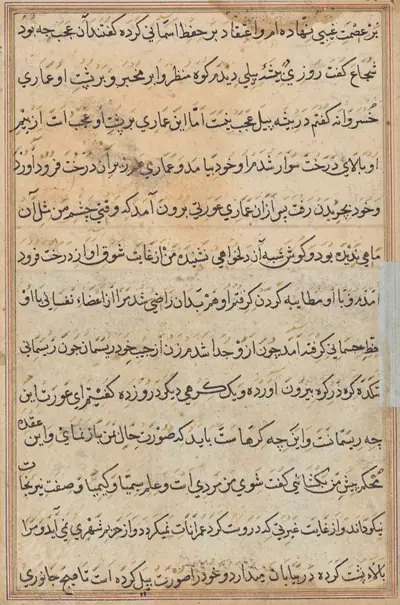 بر عصمت غیبی نهاده ام و اعتقاد بر حفظ آسمانی کرده گفتند آن عجب چه بود
شجاع گفت روزی در بیشه پیلی دیدم کوه منظر و ابر مخبر و بر پشت او عماری
خسروانه گفتم در بیشه پیل عجب نیست اما این عماری بر پشت او عجب است از بیم
او بالای درخت سوار شدم او خود بیامد و عماری در زیر آن درخت فرود آورد
و خود بچریدن رفت پس از آن عماری عورتی برون آمد که وقتی چشم من مثل آن
ماهی ندیده بود و گوش شبه آن دلخواهی نشنیده من از غایت شوق او از درخت فرود
آمدم و با او مطایبه کردن گرفتم او هم بدان راضی شد مرا از اعضاء نفسانی با او
حظ جسمانی گرفته آمد چون از و جدا شدم زن از جیب خود ریسمان چون ریسمانی
تکده گره در گره بیرون آورده و یک گرهی دیگر درو زده گفتم ای عورت این
چه ریسمانست و این چه گرهاست باید که صورت حال من باز نمای و این عقده
محکم پیش من بکشائی گفت شوی من مردی است و علم سیمیا و کیمیا و صفت نیرنجات
نیکو داند و از غایت غیرتی که دروست کرد عمرانات نمیکردد و از حریم شهری نمی آید و مرا
بالاء پشت کرده در بیابان میدارد و خود را صورت پیل کرده است تا هیچ جانوری